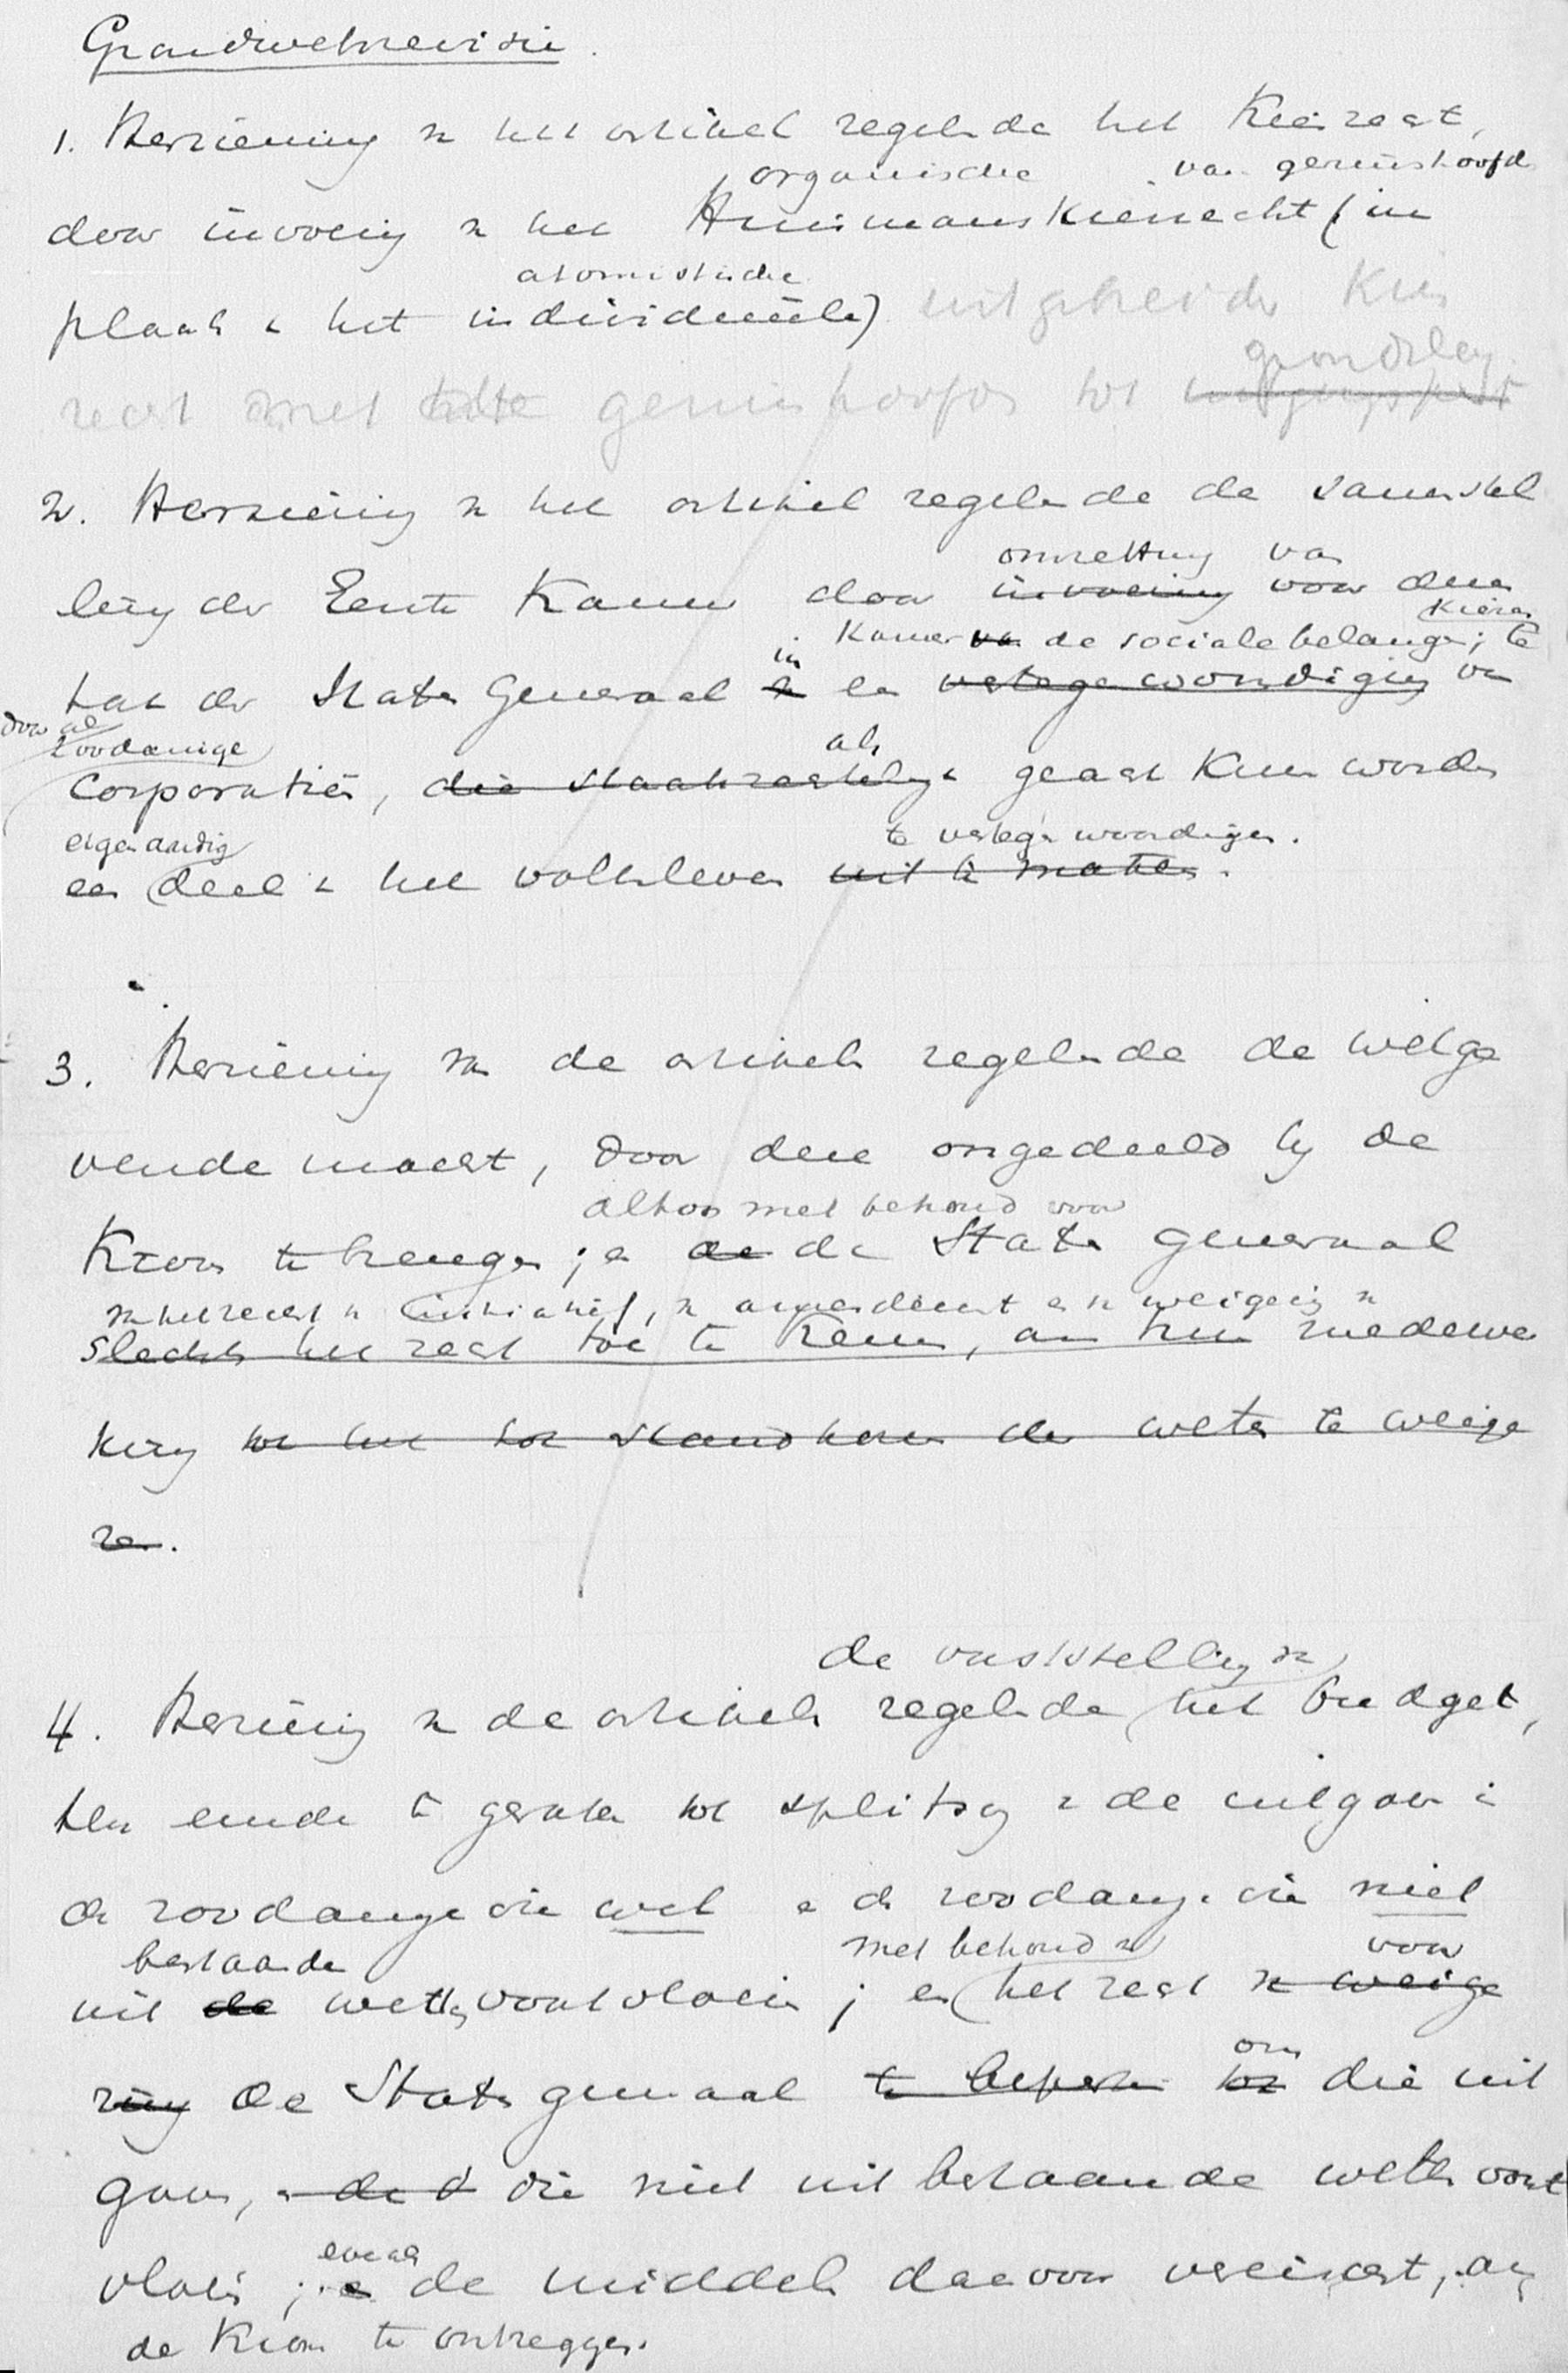 Grondwetsrevisie.
1. Herziening v het artikel regelende het Kiesrecht,
organische van gezinshoofd
door invoering v het Huismanskiesrecht (in
atomistische
plaats v het individueele) uitgebreide Kies
grondsleg
recht met gezinshoofd tot
2. Herziening v het artikel regelende de samenstel
omzetting van
ling der Eerste Kamer door invoering voor deze
Kiezen
Kamer van de sociale belangen; te
in
tak der Staten Generaal en een vertegenwoordiging van
door al
zoodanige als
Corporatiën, die staatsrechtelijk geacht kunnen worden
eigenaardig te vertegenwoordigen.
een deel v het volksleven uit te maken.
3. Herziening van de artikels regelende de wetge
vende macht, door deze ongedeeld bij de
althans met behoud voor
Kroon te brengen; en de de Staten Generaal
van het recht v initiatief, v amendement en v weigering v
slechts het recht toe te kennen, om hun medewer
king tot het tot stand komen der wetten te weige
ren.
de vaststelling van
4. Herziening v de artikels regelende het budget,
ten einde te geraken tot splitsing v de uitgaven in
de zoodanige die wel en de zoodanige die niet
bestaande met behoud van voor
uit de wetten voortvloeien; en het recht v weige
ring de Staten generaal te beperken
om
tot die uit
gaven, en de d die niet uit bestaande wetten voort
vloeien; evenals
en de middelen daarvoor vereischt, aan
de Kroon te ontzeggen.